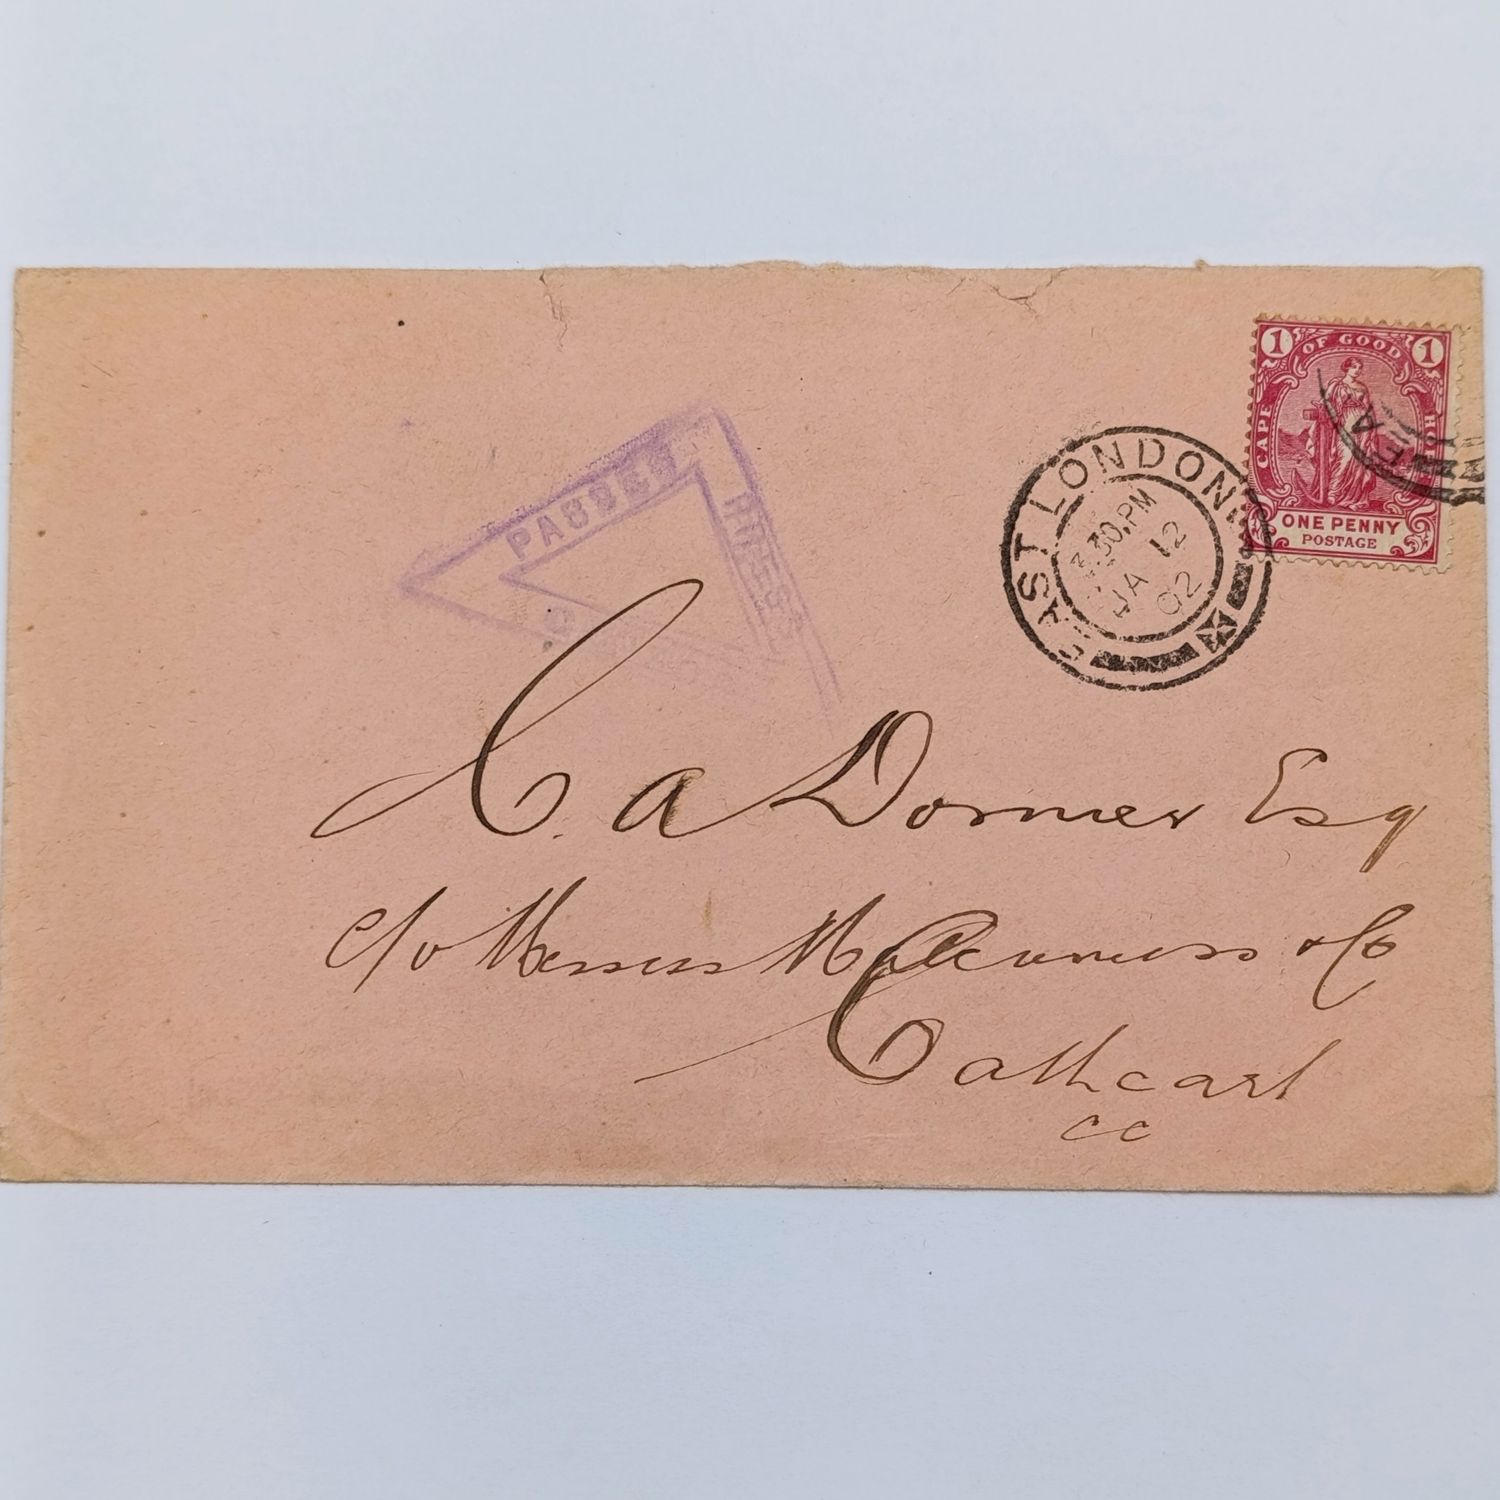 1 OF GOOD 1
CAPE HOPE
ONE PENNY
POSTAGE
EA
EAST LONDON
3.30.PM
JA 12
02
PASSED
PRESS
C. A Dorner Esq
c/o Messrs & Co
Cathcart
CC